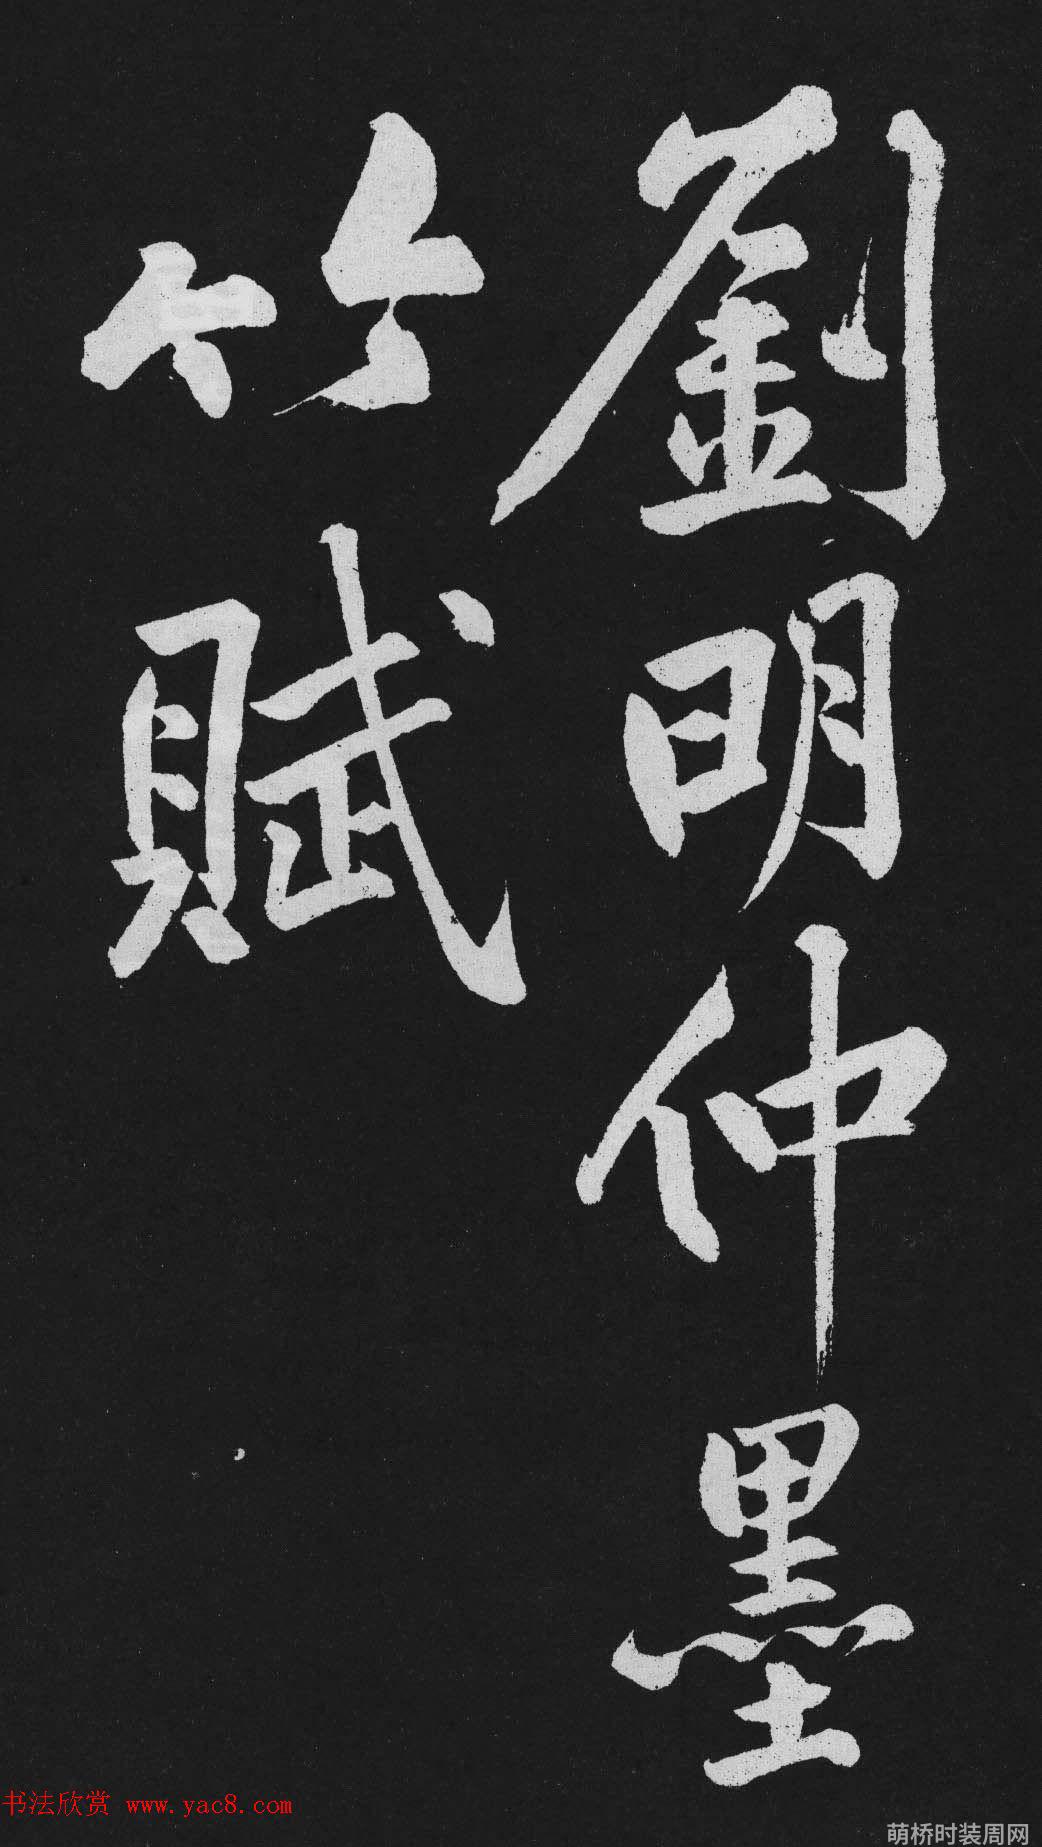 劉明仲墨
竹賦
书法欣赏 www.yac8.com
萌桥时装周网